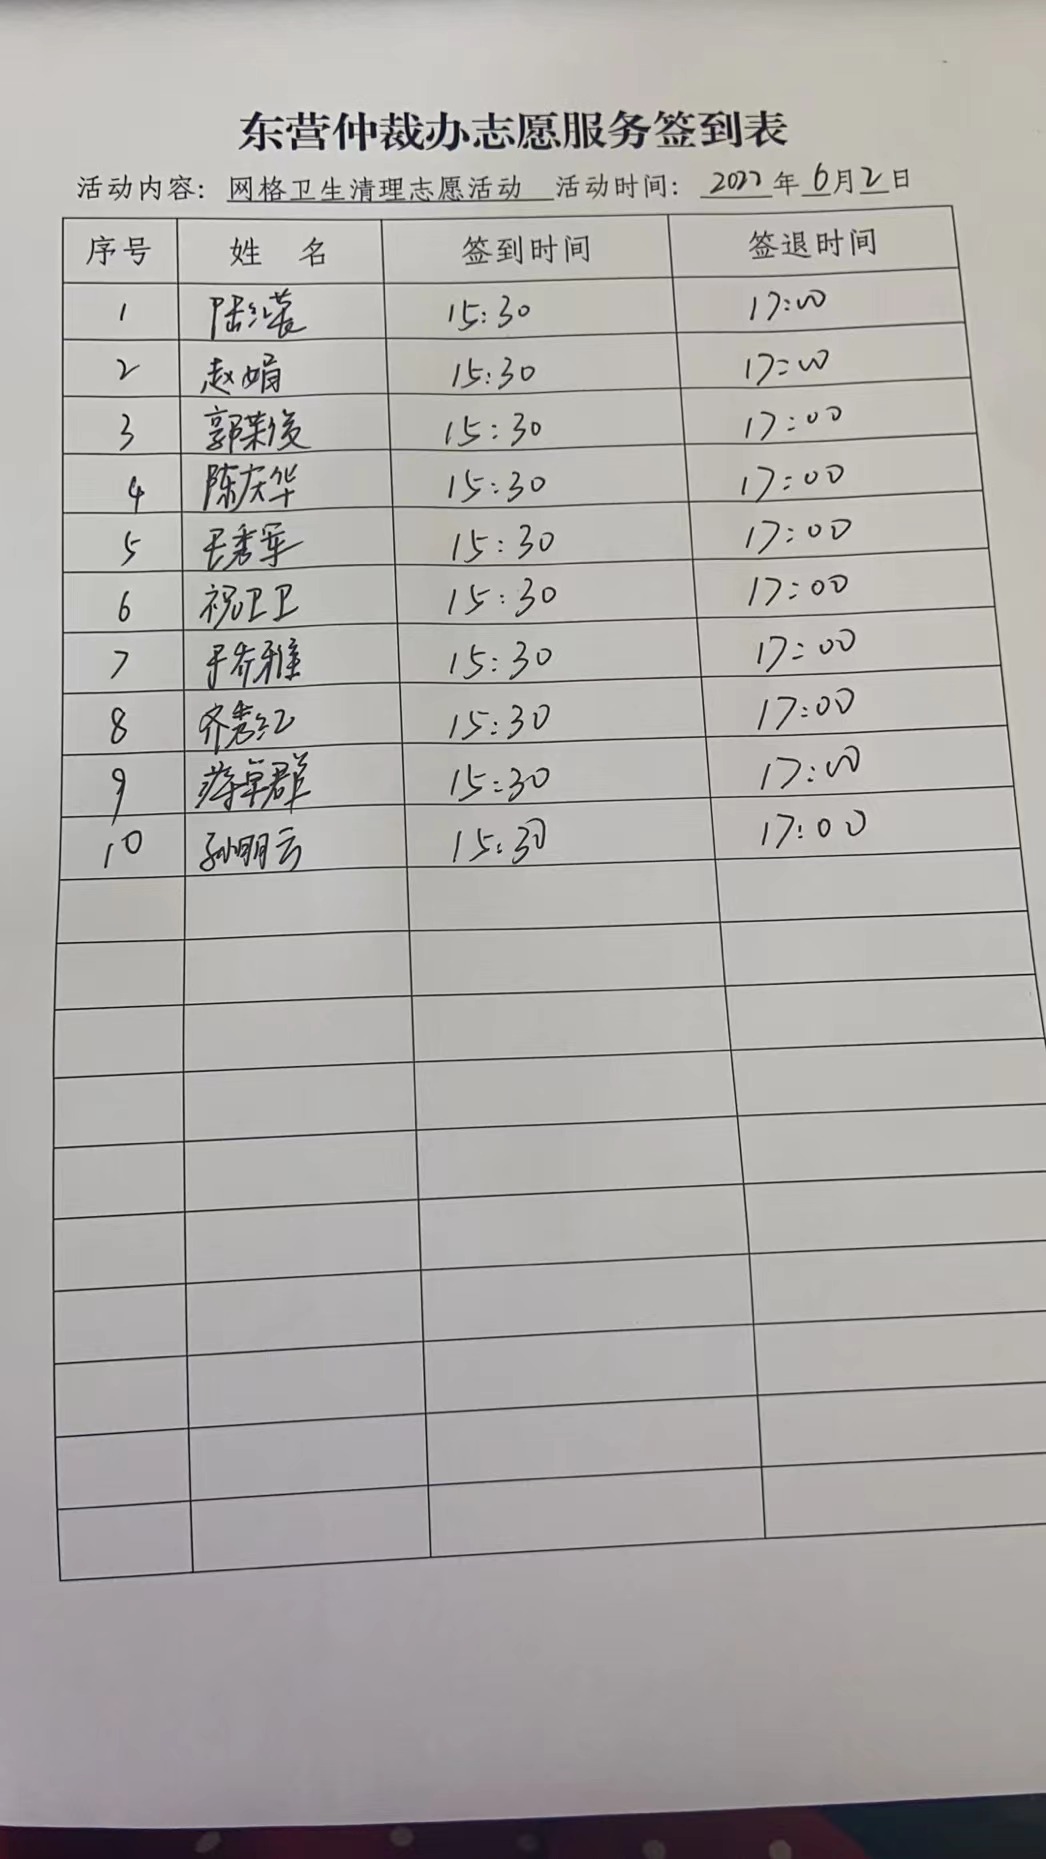 东营仲裁办志愿服务签到表
活动内容：网格卫生清理志愿活动 活动时间：2022年6月2日
序号 姓名 签到时间 签退时间
1 15:30 17:00
2 赵娟 15:30 17:00
3 郭荣俊 15:30 17:00
4 陈庆华 15:30 17:00
5 王秀军 15:30 17:00
6 祝卫卫 15:30 17:00
7 15:30 17:00
8 齐秀红 15:30 17:00
9 蒋卓群 15:30 17:00
10 孙明云 15:30 17:00